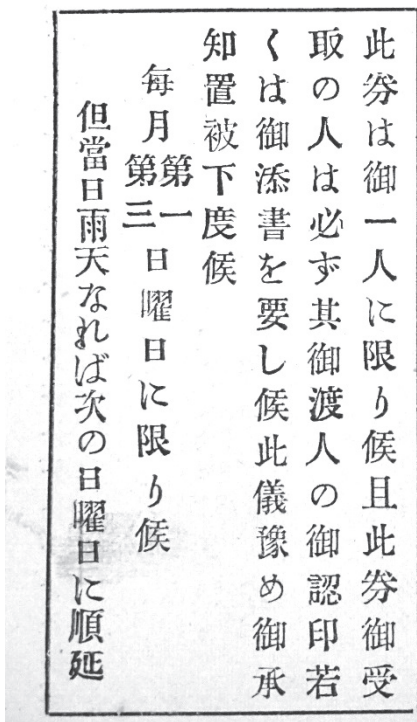 此券は御一人に限り候且此券御受
取の人は必ず其御渡人の御認印若
くは御添書を要し候此儀豫め御承
知置被下度候
毎月第一第三日曜日に限り候
但當日雨天なれば次の日曜日に順延